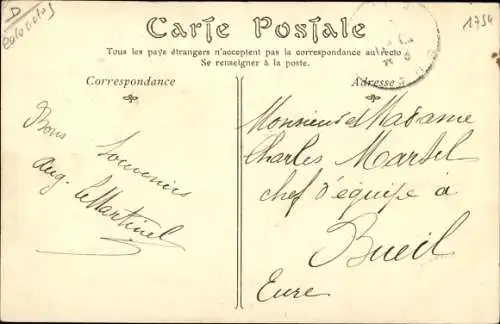 D
1754
Carte Postale
Tous les pays étrangers n'acceptent pas la correspondance au recto
Se renseigner à la poste.
Correspondance
Adresse
Bons Souvenirs
Aug. Le Martinel
Monsieur et Madame
Charles Martel
chef d'équipe à
Bueil
Eure